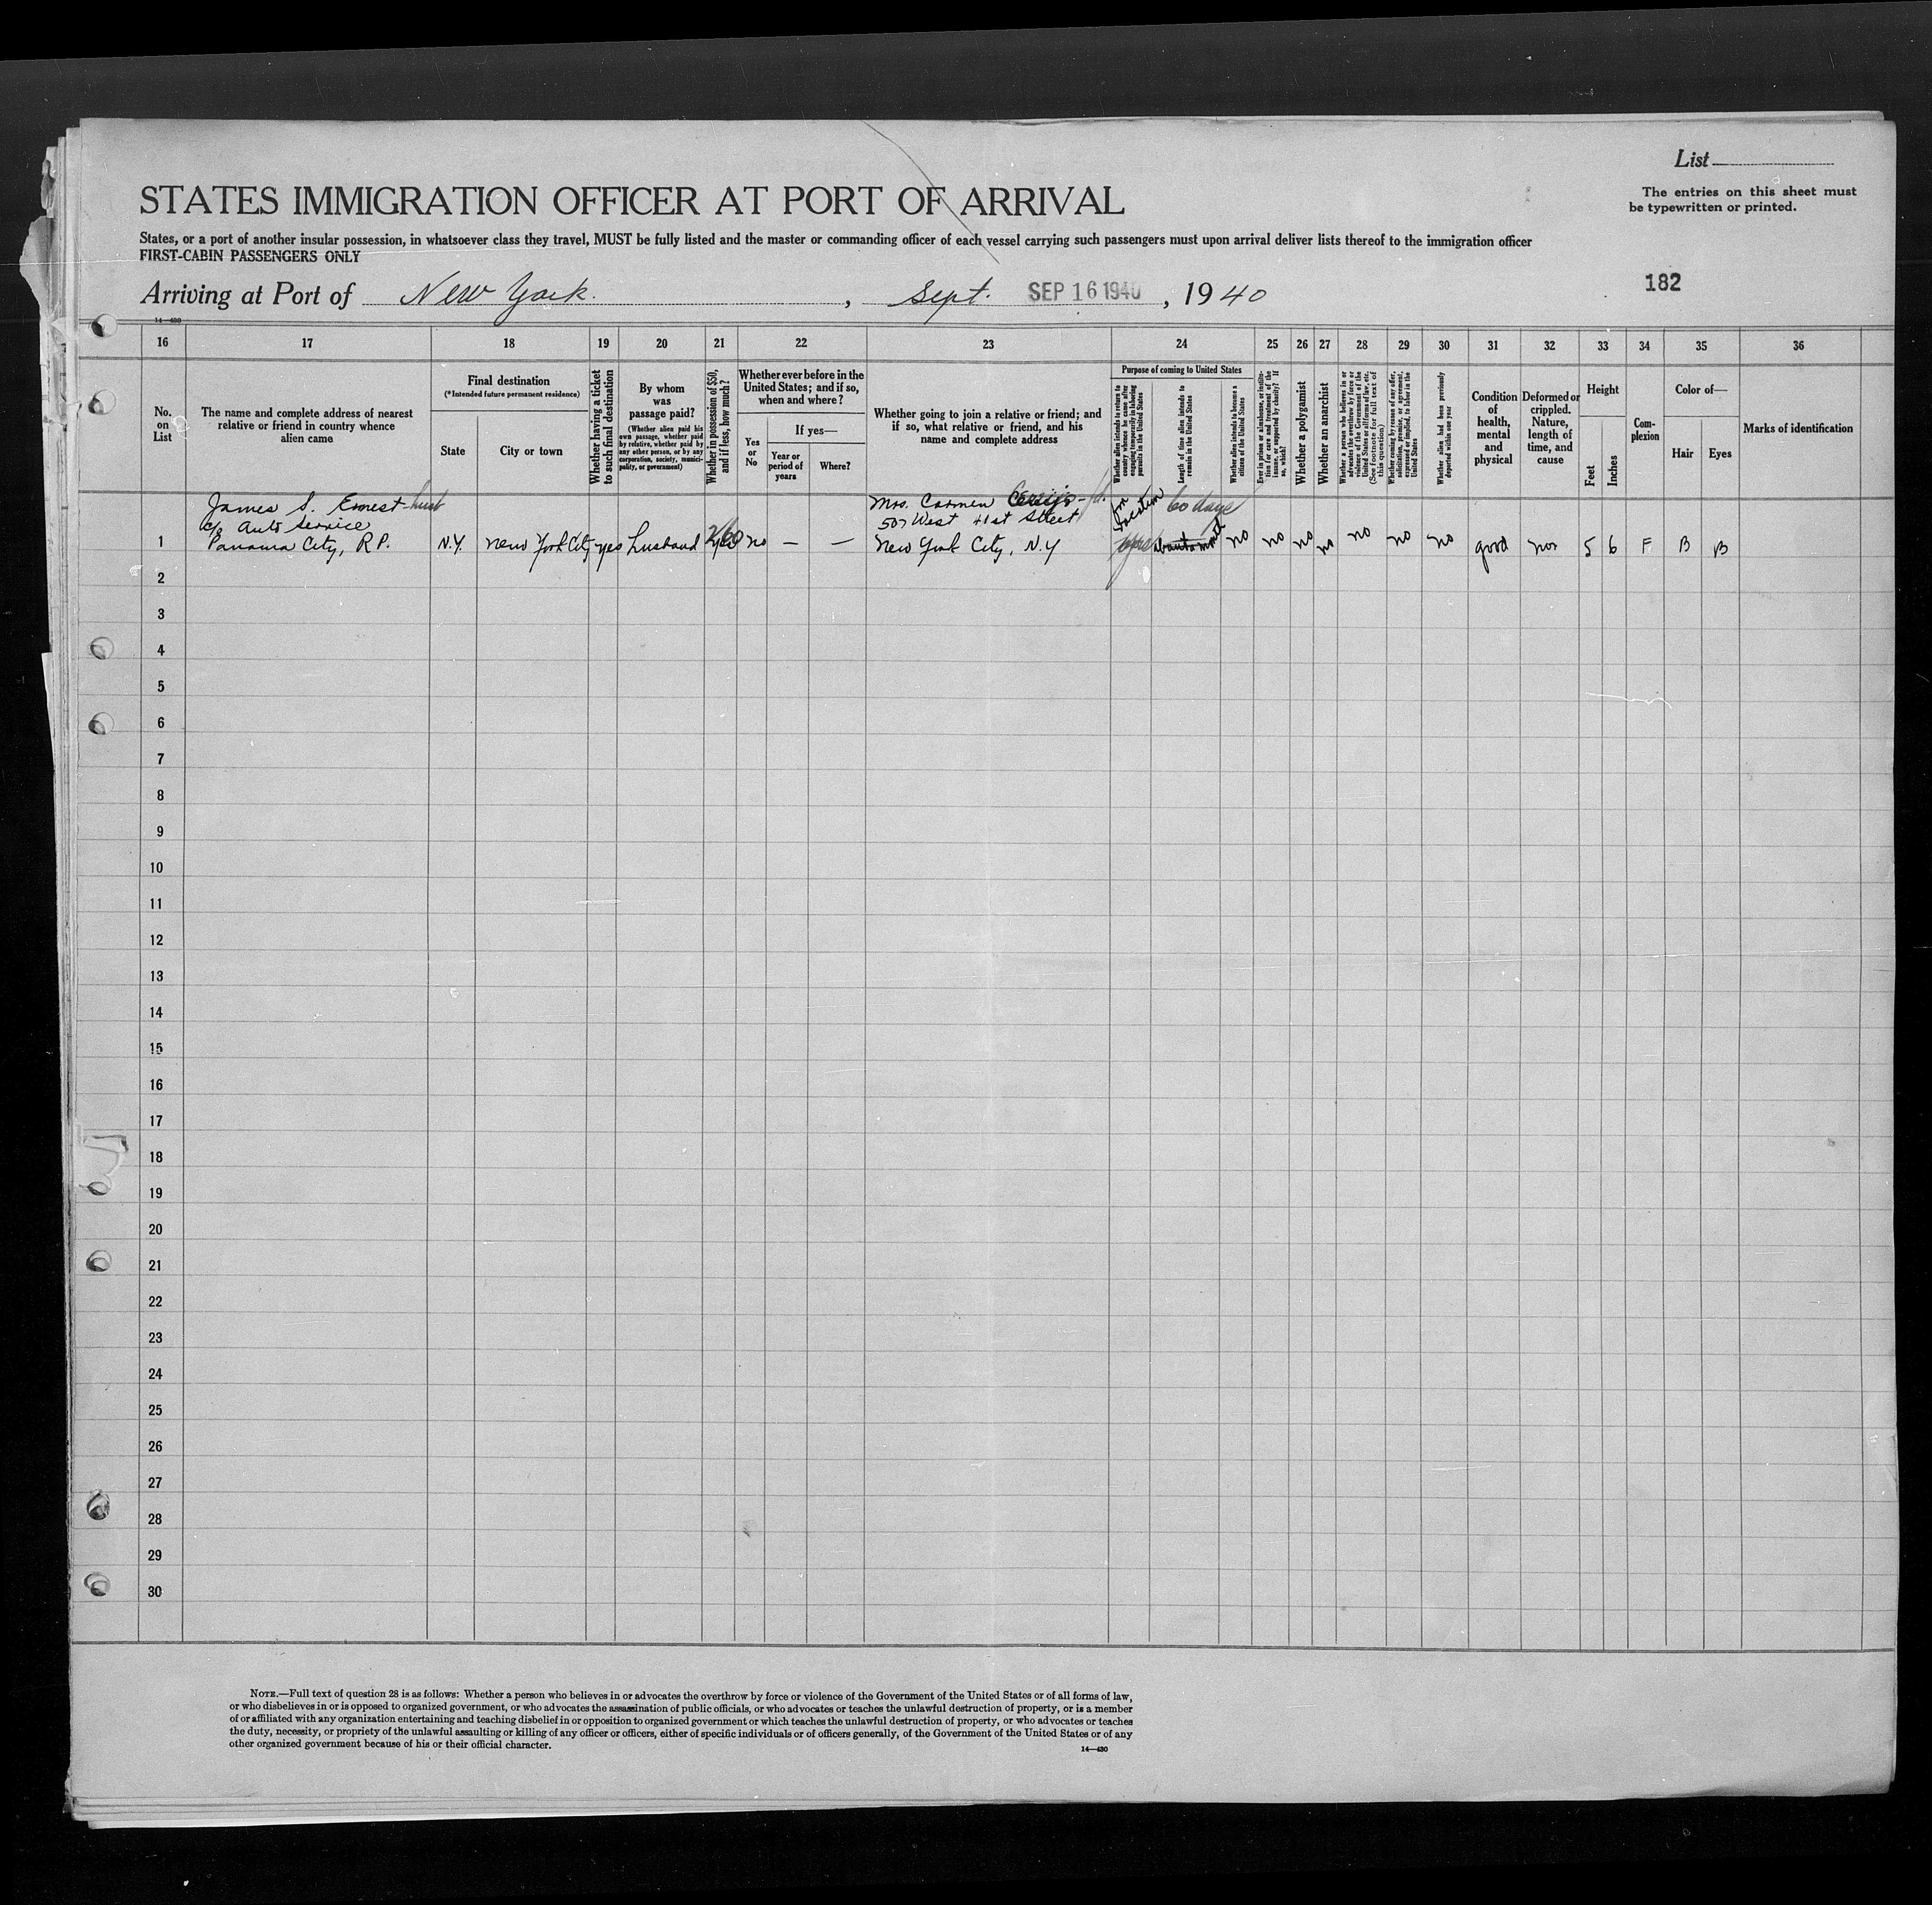 List
The entries on this sheet must
be typewritten or printed.
STATES IMMIGRATION OFFICER AT PORT OF ARRIVAL
States, or a port of another insular possession, in whatsoever class they travel, MUST be fully listed and the master or commanding officer of each vessel carrying such passengers must upon arrival deliver lists thereof to the immigration officer
FIRST-CABIN PASSENGERS ONLY
Arriving at Port of New York. , Sept. SEP 16 1940 , 1940
182
14—430
16 17 18 19 20 21 22 23 24 25 26 27 28 29 30 31 32 33 34 35 36
No.
on
List
The name and complete address of nearest
relative or friend in country whence
alien came
Final destination
(*Intended future permanent residence)
State
City or town
Whether having a ticket
to such final destination
By whom
was
passage paid?
(Whether alien paid his
own passage, whether paid
by relative, whether paid by
any other person, or by any
corporation, society, munici-
pality, or government)
Whether in possession of $50,
and if less, how much?
Whether ever before in the
United States; and if so,
when and where?
Yes
or
No
If yes—
Year or
period of
years
Where?
Whether going to join a relative or friend; and
if so, what relative or friend, and his
name and complete address
Purpose of coming to United States
Whether alien intends to return to
country whence he came after
engaging temporarily in laboring
pursuits in the United States
Length of time alien intends to
remain in the United States
Whether alien intends to become a
citizen of the United States
Ever in prison or almshouse, or institu-
tion for care and treatment of the
insane, or supported by charity? If
so, which?
Whether a polygamist
Whether an anarchist
Whether a person who believes in or
advocates the overthrow by force or
violence of the Government of the
United States or all forms of law, etc.
(See footnote for full text of
this question)
Whether coming by reason of any offer,
solicitation, promise, or agreement,
expressed or implied, to labor in the
United States
Whether alien had been previously
deported within one year
Condition
of
health,
mental
and
physical
Deformed or
crippled.
Nature,
length of
time, and
cause
Height
Feet
Inches
Com-
plexion
Color of—
Hair
Eyes
Marks of identification
James S. Ernest - husb
c/o Auto Service
Panama City, R.P.
1 N.Y. New York City yes husband no — —
Mrs. Carmen
507 West 41st Street
New York City, N.Y
for
vacation
60 days
no no no no no no no good nor 5 6 F B B
2
3
4
5
6
7
8
9
10
11
12
13
14
15
16
17
18
19
20
21
22
23
24
25
26
27
28
29
30
NOTE.—Full text of question 28 is as follows: Whether a person who believes in or advocates the overthrow by force or violence of the Government of the United States or of all forms of law,
or who disbelieves in or is opposed to organized government, or who advocates the assassination of public officials, or who advocates or teaches the unlawful destruction of property, or is a member
of or affiliated with any organization entertaining and teaching disbelief in or opposition to organized government or which teaches the unlawful destruction of property, or who advocates or teaches
the duty, necessity, or propriety of the unlawful assaulting or killing of any officer or officers, either of specific individuals or of officers generally, of the Government of the United States or of any
other organized government because of his or their official character.
14—430